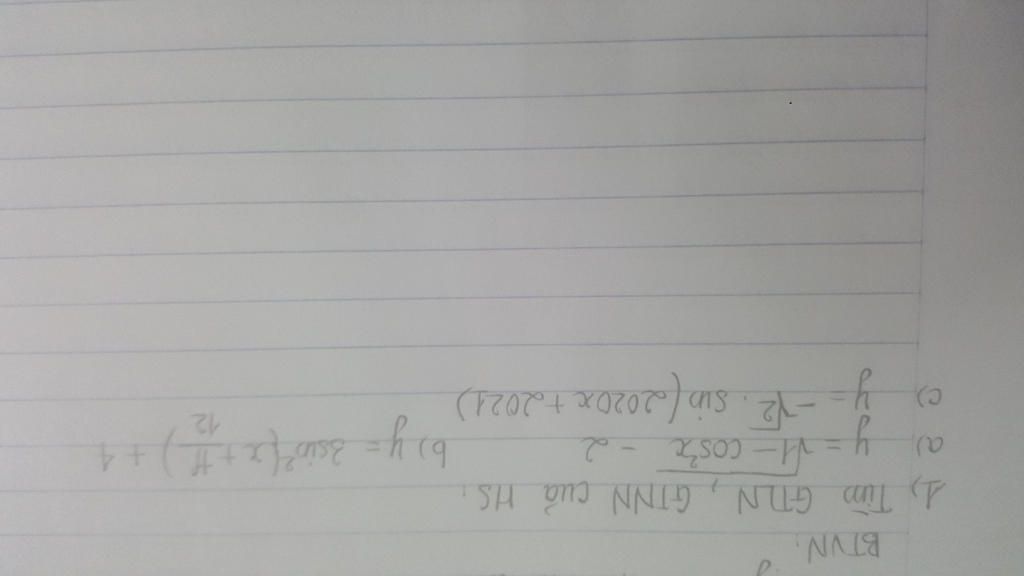 BTVN:
1) Tìm GTLN, GTNN của HS:
a) y = √1 - cos²x - 2 b) y = 3sin²(x + π/12) + 1
c) y = -√2 . sin(2020x + 2021)